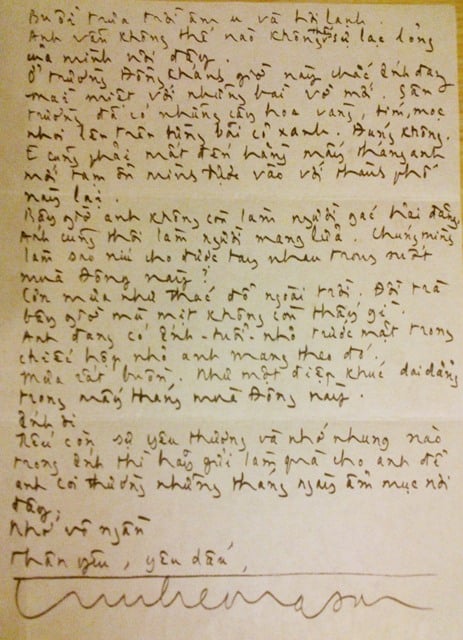 Buổi trưa trời âm u và hơi lạnh.
Anh vẫn không thể nào không thấy sự lạc lõng
của mình nơi đây.
Ở trường Đồng Khánh giờ này chắc Ánh đang
mải miết với những bài vở mới. Sân
trường để có những cây hoa vàng, tím, mọc
nhoi lên trên từng bãi cỏ xanh. Đúng không.
E cũng phải mất đến hàng mấy tháng anh
mới tạm ổn mình được vào với thành phố
này lại.
Bây giờ anh không còn làm người gác hải đăng.
Anh cũng thôi làm người mang lửa. Chúng mình
làm sao níu cho được tay nhau trong suốt
mùa Đông này?
Cơn mưa như thác đổ ngoài trời. Đồi trà
bây giờ mù mịt không còn thấy gì.
Anh đang có Ánh-tuổi-nhỏ trước mặt trong
chiếc hộp nhỏ anh mang theo đó.
Mưa rất buồn. Như một điệp khúc dai dẳng
trong mấy tháng mùa Đông này.
Ánh ơi
Nếu còn sự yêu thương và nhớ nhung nào
trong Ánh thì hãy gửi làm quà cho anh để
anh coi thường những tháng ngày ẩm mục nơi
đây.
Nhớ vô ngần
Thân yêu, yêu dấu,